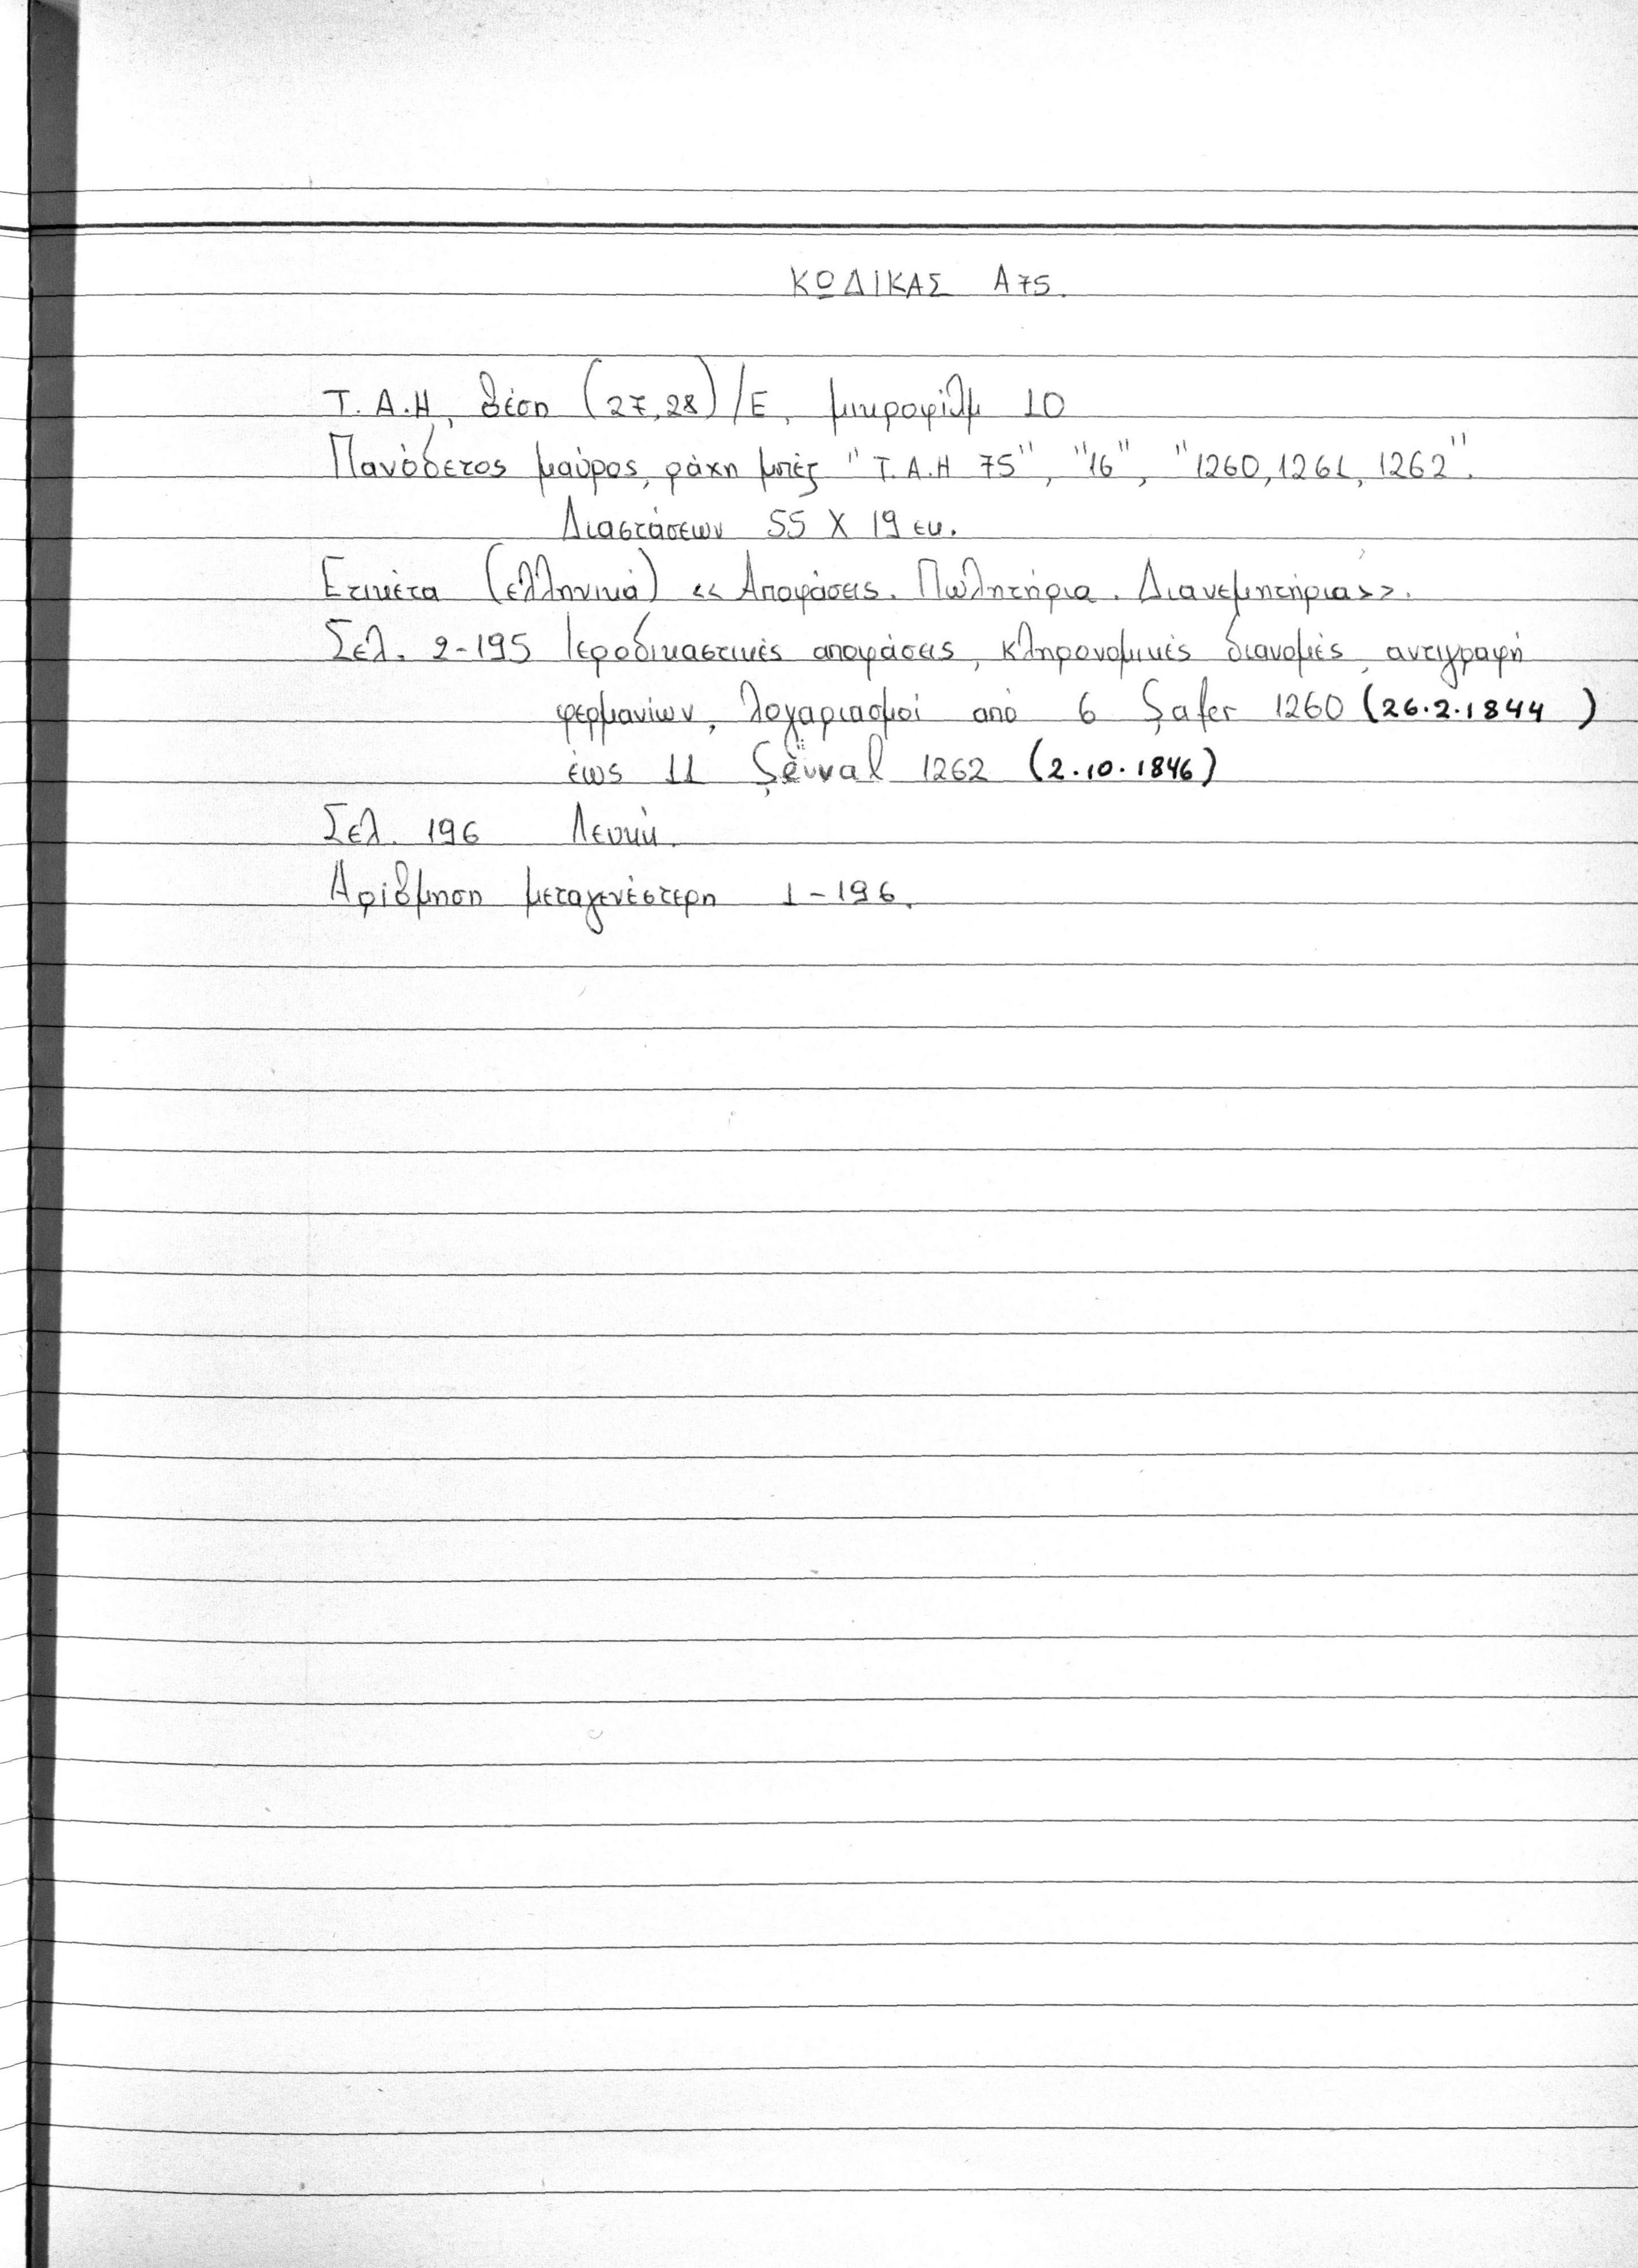 ΚΩΔΙΚΑΣ Α75.
Τ.Α.Η, θέση (27,28)/Ε, μικροφίλμ 10
Πανόδετος μαύρος, ράχη μπέζ "Τ.Α.Η 75", "16", "1260, 1261, 1262".
Διαστάσεων 55 Χ 19 εκ.
Ετικέτα (ελληνικά) << Αποφάσεις. Πωλητήρια. Διανεμητήρια>>.
Σελ. 2-195 Ιεροδικαστικές αποφάσεις, κληρονομικές διανομές, αντιγραφή
φερμανίων, λογαριασμοί από 6 Şafer 1260 (26.2.1844 )
έως 11 Şevval 1262 (2.10.1846)
Σελ. 196 Λευκή.
Αρίθμηση μεταγενέστερη 1-196.